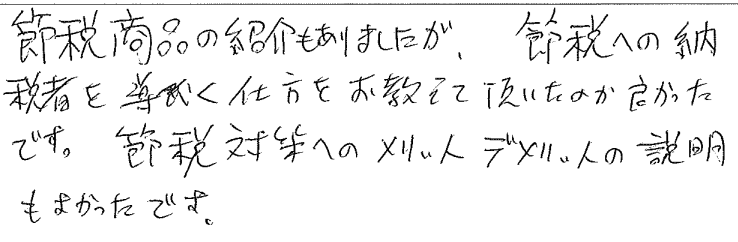 節税商品の紹介もありましたが、節税への納
税者を導びく仕方をお教えて頂いたのが良かった
です。節税対策へのメリット デメリットの説明
もよかったです。